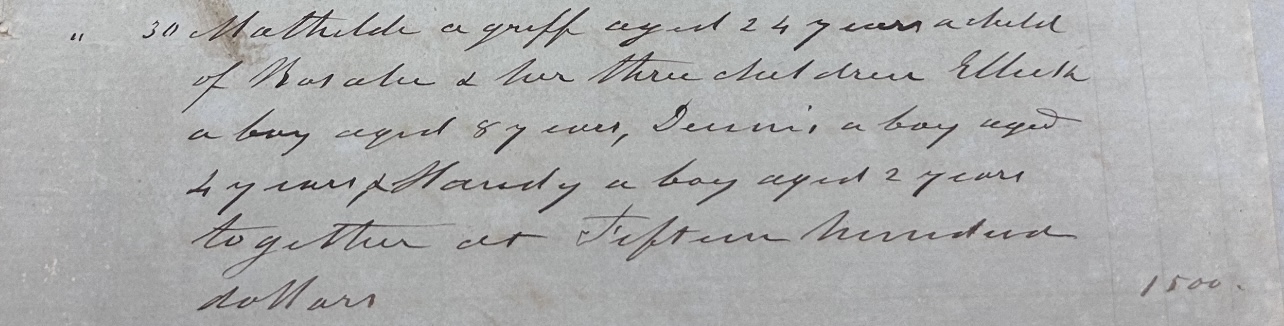 " 30 Mathilde a griff aged 24 years a child
of Rosalie & her three children Ellick
a boy aged 8 years, Dennis a boy aged
4 years & Handy a boy aged 2 years
together at Fifteen hundred
dollars 1500.